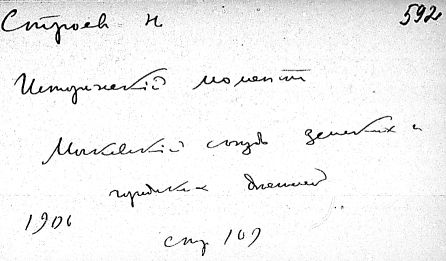 Строев Н
592
Исторический моментъ
Московский съездъ земских и
городских деятелей
1906
стр 109